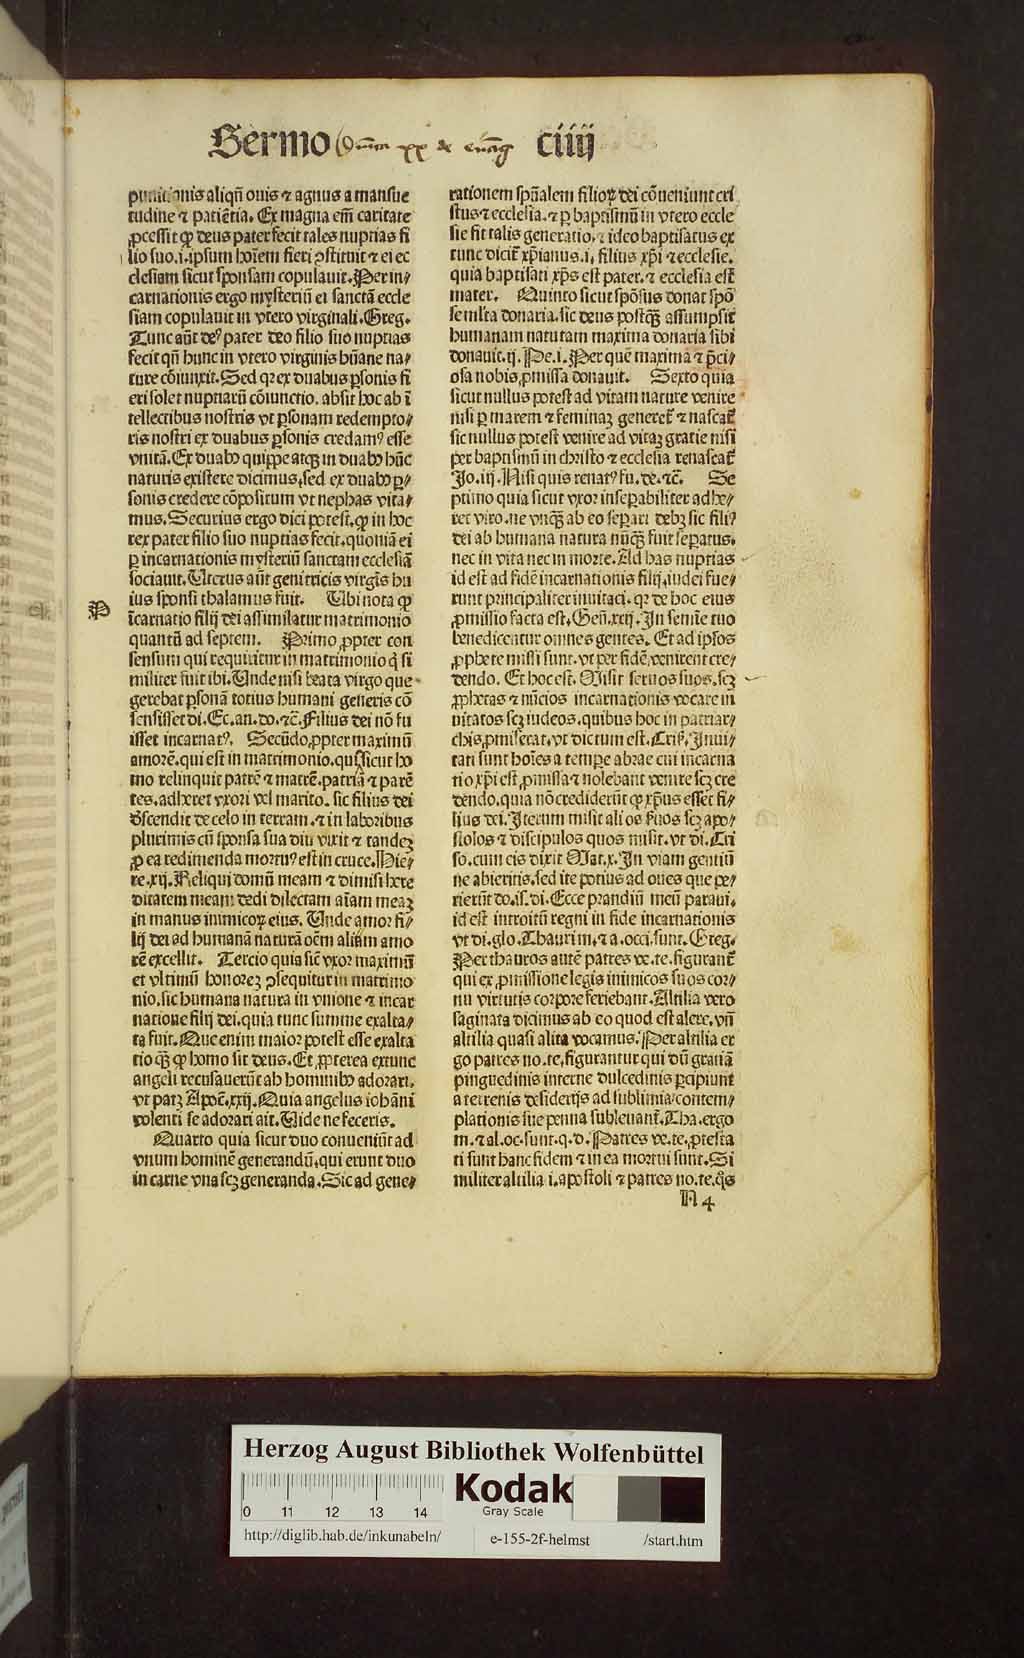 Sermo Dnica xx de euāg ciiij
punitionis aliqñ ouis ⁊ agnus a mansue
tudine ⁊ patiētia. Ex magna em̄ caritate
ꝓcessit ꝙ deus pater fecit tales nuptias fi
lio suo.i.ipsum hoīem fieri ꝯstituit ⁊ ei ec
clesiam sicut sponsam copulauit. Per in⸗
carnationis ergo mysteriū ei sanctā eccle
siam copulauit in vtero virginali. Greg.
Tunc aūt deꝰ pater deo filio suo nuptias
fecit qñ hunc in vtero virginis hūane na⸗
ture cōiunxit. Sed qꝛ ex duabus ꝑsonis fi
eri solet nuptiarū cōiunctio. absit hoc ab ī
tellectibus nostris vt ꝑsonam redempto⸗
ris nostri ex duabus ꝑsonis credamꝰ esse
vnitā. Ex duabꝰ quippe atqꝫ in duabꝰ hūc
naturis existere dicimus, sed ex duabꝰ ꝑ⸗
sonis credere cōpositum vt nephas vita⸗
mus. Securius ergo dici potest, ꝙ in hoc
rex pater filio suo nuptias fecit, quoniā ei
ꝑ incarnationis mysteriū sanctam ecclesiā
sociauit. Uterus aūt genitricis virgīs hu
ius sponsi thalamus fuit. Ubi nota ꝙ
P
īcarnatio filij dei assimilatur matrimonio
quantū ad septem. Primo ꝓpter con
sensum qui requiritur in matrimonio q̇ si
militer fuit ibi. Unde nisi beata virgo que
gerebat ꝑsonā totius humani generis cō
sensisset di. Ec. an. do. ⁊c̄. Filius dei nō fu
isset incarnatꝰ. Secūdo ꝓpter maximū
amorē. qui est in matrimonio. qꝛ sicut ho
mo relinquit patrē ⁊ matrē. patriā ⁊ parē
tes. adheret vxori vel marito. sic filius dei
descendit de celo in terram. ⁊ in laboribus
plurimis cū sponsa sua diu vixit ⁊ tandeꝫ
ꝓ ea redimenda mortuꝰ est in cruce. Hie⸗
re. xij. Reliqui domū meam ⁊ dimisi here
ditatem meam dedi dilectam aīam meaꝫ
in manus inimicoꝝ eius. Unde amor fi⸗
lij dei ad humanā naturā oēm aliam amo
rē excellit. Tercio quia sicut vxor maximū
et vltimū honoreꝫ ꝯsequitur in matrimo
nio, sic humana natura in vnione ⁊ incar
natione filij dei. quia tunc summe exalta⸗
ta fuit. Que enim maior potest esse exalta
tio qꝫ ꝙ homo sit deus. Et ꝓpterea extunc
angeli recusauerūt ab hominibꝰ adorari.
vt patꝫ Apoc̄. xxij. Quia angelus iohāni
volenti se adorari ait. Uide ne feceris.
Quarto quia sicut duo conueniūt ad
vnum hominē generandū, qui erunt duo
in carne vna scꝫ generanda. Sic ad gene⸗
rationem spūalem filioꝝ dei cōueniunt cri
stus ⁊ ecclesia. ⁊ ꝑ baptismū in vtero eccle
sie fit talis generatio, ⁊ ideo baptisatus ex
tunc dicit̄ xp̄ianus. i. filius xp̄i ⁊ ecclesie.
quia baptisati xp̄s est pater. ⁊ ecclesia est
mater. Quinto sicut spōsus donat spō
se mlta donaria. sic deus postqꝫ assumpsit
humanam naturam maxima donaria sibi
donauit. ij. Pe. i. Per quē maxima ⁊ p̄ci⸗
osa nobis ꝓmissa donauit. Sexto quia
sicut nullus potest ad vitam nature venire
nisi ꝑ marem ⁊ feminaꝫ generet̄ ⁊ nascat̄
sic nullus potest venire ad vitaꝫ gratie nisi
per baptismū in christo ⁊ ecclesia renascat̄
Jo. iij. Nisi quis renatꝰ fu. de. ⁊c̄. Se
ptimo quia sicut vxor inseparabiliter adhe⸗
ret viro. ne vnqꝫ ab eo separi debꝫ sic filiꝰ
dei ab humana natura nūqꝫ fuit seꝑatus.
nec in vita nec in morte. Ad has nuptias
id est ad fidē incarnationis filij, iudei fue⸗
runt principaliter inuitati. qꝛ de hoc eius
ꝓmissio facta est. Gen̄. xxij. In semīe tuo
benedicentur omnes gentes. Et ad ipsos
ꝓphete missi sunt. vt per fidē, venirent cre⸗
dendo. Et hoc est. Misit seruos suos. scꝫ
ꝓphetas ⁊ nūcios incarnationis vocare in
uitatos scꝫ iudeos. quibus hoc in patriar⸗
chis ꝓmiserat, vt dictum est. Cris̄. Inui⸗
tati sunt hoīes a tempe abrae cui incarna
tio xp̄i est ꝓmissa ⁊ nolebant venire scꝫ cre
dendo. quia nō crediderūt ꝙ xp̄us esset fi⸗
lius dei. Iterum misit alios suos scꝫ apo⸗
stolos ⁊ discipulos quos misit. vt di. Cri
so. cum eis dixit Mat. x. In viam gentiū
ne abieritis. sed ite potius ad oues que pe⸗
rierūt do. is. di. Ecce prandiū meū paraui.
id est introitū regni in fide incarnationis
vt di. glo. Thauri m. ⁊ a. occi. sunt. Greg.
Per thauros autē patres ve. te. figurant̄
qui ex ꝓmissione legis inimicos suos cor⸗
nu virtutis corpore feriebant. Altilia vero
saginata dicimus ab eo quod est alere. vn̄
altilia quasi alita vocamus. Per altilia er
go patres no. te, figurantur qui dū gratiā
pinguedinis interne dulcedinis ꝑcipiunt
a terrenis desiderijs ad sublimia contem⸗
plationis sue penna subleuant̄. Tha. ergo
m. ⁊ al. oc. sunt. q. d. Patres ve. te. ꝓtesta
ti sunt hanc fidem ⁊ in ea mortui sunt. Si
militer altilia i. apostoli ⁊ patres no. te. q̄s
N 4
Herzog August Bibliothek Wolfenbüttel
0 11 12 13 14
Kodak
Gray Scale
http://diglib.hab.de/inkunabeln/ e-155-2f-helmst /start.htm